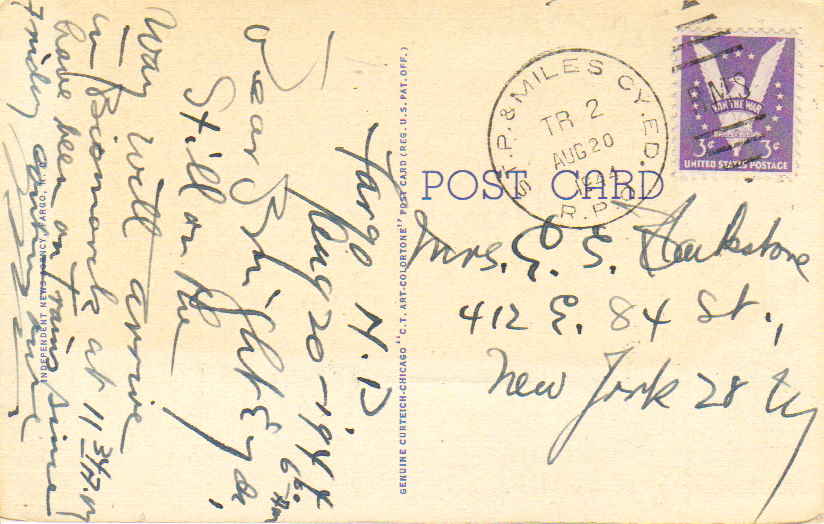 Fargo N. D.
Aug 20 - 1944
6 30 AM
Dear Bright Eyes,
Still on the
way will arrive
in Bismarck at 11 34 A.M
have been on trains since
Friday
INDEPENDENT NEWS AGENCY, FARGO, N. D.
GENUINE CURTEICH-CHICAGO "C.T. ART-COLORTONE" POST CARD (REG. U.S. PAT. OFF.)
POST CARD
ST. P. & MILES CY. E.D.
TR 2
AUG 20
1944
R.P.O.
RMS
WIN THE WAR
3¢ 3¢
UNITED STATES POSTAGE
Mrs. E. S.
412 E. 84 St.,
New York 28 Ny